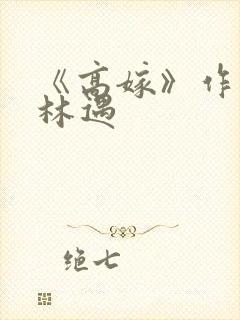 《高嫁》作
林遇
绝七